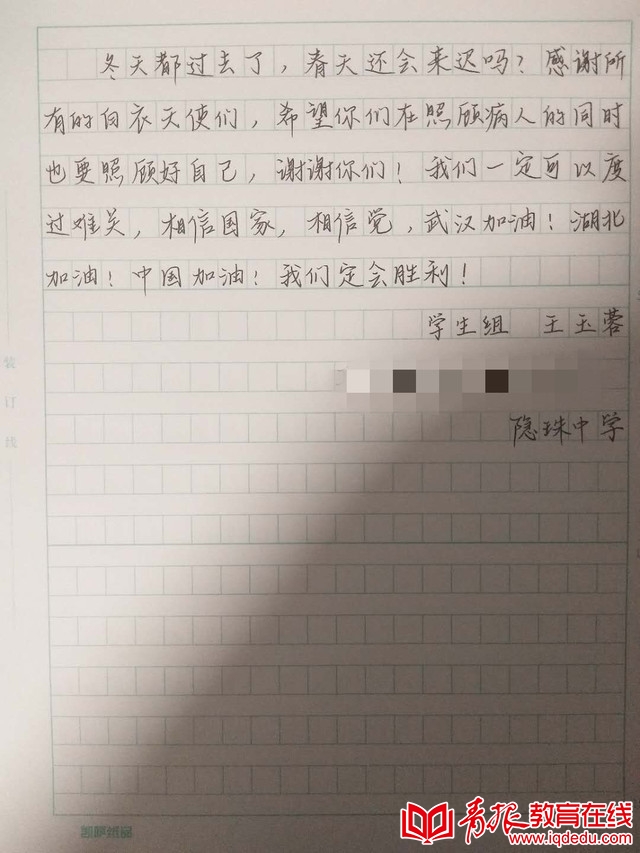 冬天都过去了，春天还会来迟吗？感谢所
有的白衣天使们，希望你们在照顾病人的同时
也要照顾好自己，谢谢你们！我们一定可以度
过难关，相信国家，相信党，武汉加油！湖北
加油！中国加油！我们定会胜利！
学生组 王玉蓉
隐珠中学
装
订
线
凯萨纸品
青报教育在线
www.iqdedu.com